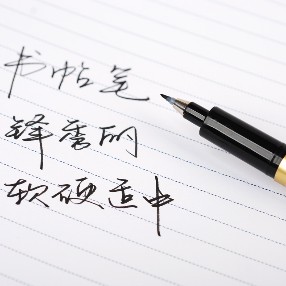 书帖笔
锋秀丽
软硬适中